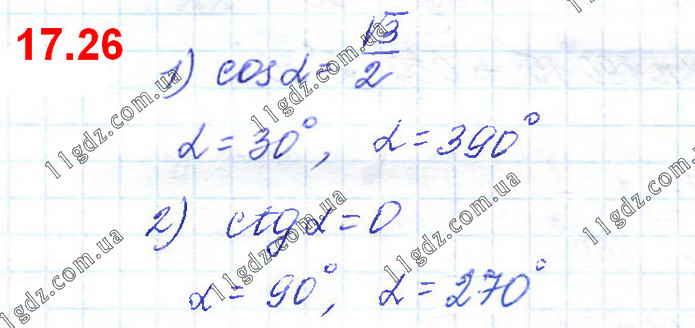 17.26
1) cosα = √3/2
α = 30°, α = 390°
2) ctgα = 0
α = 90°, α = 270°
11gdz.com.ua
11gdz.com.ua
11gdz.com.ua
11gdz.com.ua
11gdz.com.ua
11gdz.com.ua